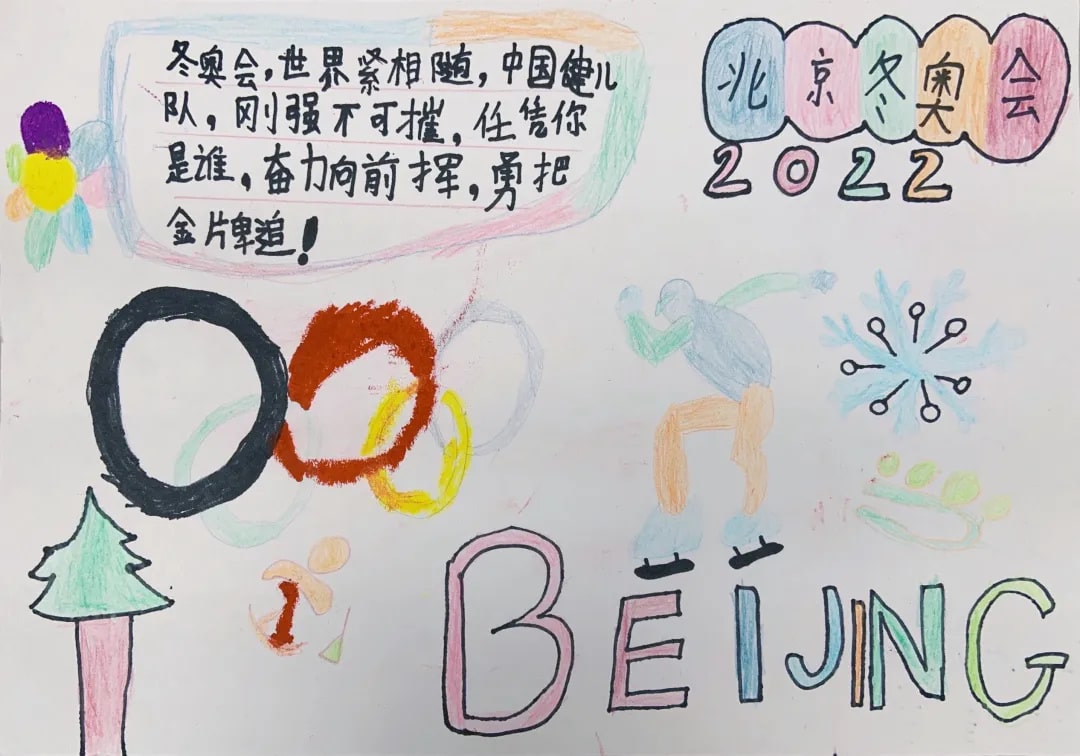 冬奥会，世界紧相随，中国健儿
队，刚强不可摧，任凭你
是谁，奋力向前挥，勇把
金牌追！
北京冬奥会
2022
BEIJING